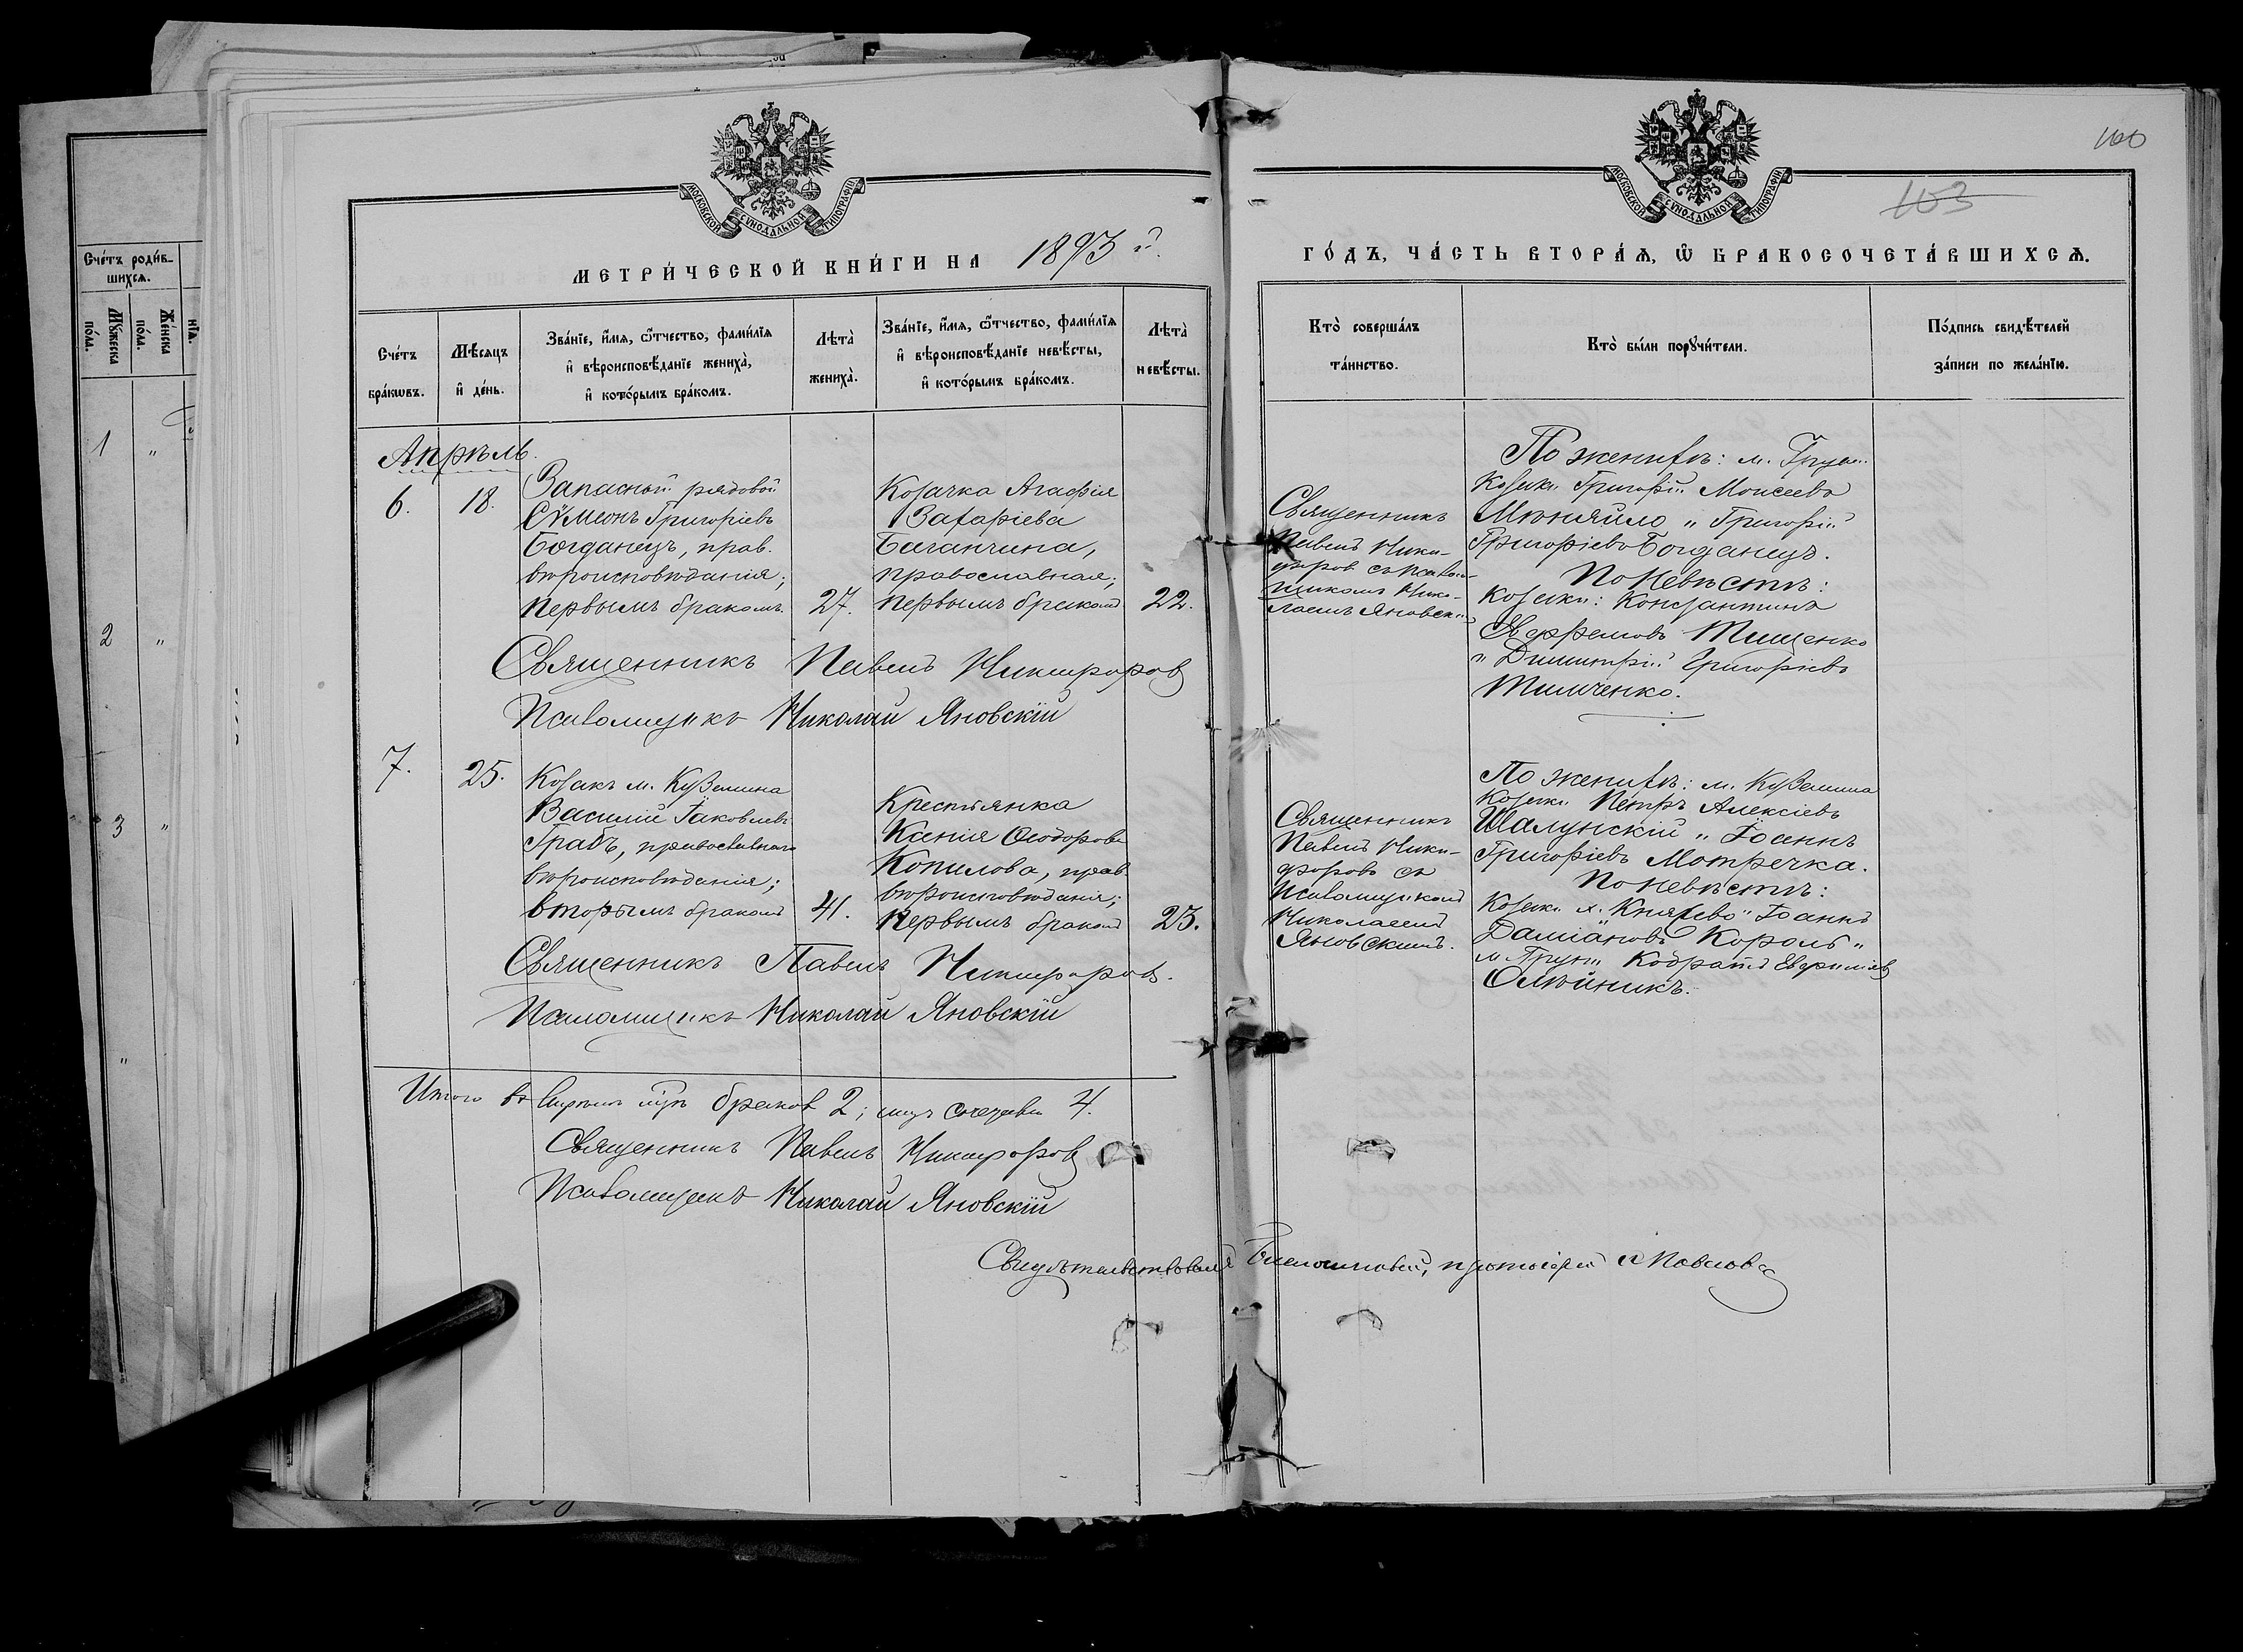 100
103
МОСКОВСКОЙ СѴНОДАЛЬНОЙ ТИПОГРАФІИ
МОСКОВСКОЙ СѴНОДАЛЬНОЙ ТИПОГРАФІИ
МЕТРИ́ЧЕСКОЙ КНИ́ГИ НА 1893 г.
ГО́ДЪ, ЧА́СТЬ ВТОРА́Ѧ, Ѽ БРАКОСОЧЕТА́ВШИХСѦ.
Сче́тъ роди́в-
шихсѧ.
Мꙋ́жеска
по́ла.
Же́нска
по́ла.
нїѧ.
1 "
2 "
3 "
"
Сче́тъ
бра́кѡвъ.
Мѣ́сѧцъ
и҆ де́нь.
Зва́нїе, и҆́мѧ, ѻ҆́тчество, фами́лїѧ
и҆ вѣроисповѣ́данїе жениха̀,
и҆ кото́рымъ бра́комъ.
Лѣ́та̀
жениха̀.
Зва́нїе, и҆́мѧ, ѻ҆́тчество, фами́лїѧ
и҆ вѣроисповѣ́данїе невѣ́сты,
и҆ кото́рымъ бра́комъ.
Лѣ́та̀
невѣ́сты.
Кто̀ соверша́лъ
та́инство.
Кто̀ бы́ли порꙋчи́тели.
По́дпись свидѣ́телей
за́писи по жела́нїю.
Апрѣль.
6.
18.
Запасной рядовой
Сѵмеонъ Григоріевъ
Богданецъ, прав.
вѣроисповѣданія;
первымъ бракомъ.
27.
Козачка Агафія
Захаріева
Баганчина,
православная;
первымъ бракомъ
22.
Священникъ
Павелъ Ники-
форов съ псалом-
щикомъ Нико-
лаемъ Яновски
По женихѣ: м. Груни
Козаки Григорій Моисеевъ
Мѣняйло " Григорій
Григоріевъ Богданецъ.
По невѣстѣ:
Козаки: Константинъ
Ефремовъ Тищенко
" Димитрій Григоріевъ
Тимченко.
Священникъ Павелъ Никифоровъ
Псаломщикъ Николай Яновскій
7.
25.
Козакъ м. Куземина
Василій Іаковлевъ
Грабъ, православнаго
вѣроисповѣданія;
вторымъ бракомъ
41.
Крестьянка
Ксенія Ѳеодорова
Копилова, прав.
вѣроисповѣданія;
первымъ бракомъ
23.
Священникъ
Павелъ Ники-
форовъ съ
псаломщикомъ
Николаемъ
Яновскимъ.
По женихѣ: м. Куземина
Козаки Петръ Алексіевъ
Шалунскій " Іоаннъ
Григоріевъ Мотречка.
По невѣстѣ:
Козаки х. "Княжево" Іоаннъ
Даміановъ Король "
м. Груни Кодратъ Евфиміевъ
Олѣйникъ.
Священникъ Павелъ Никифоровъ.
Псаломщикъ Николай Яновскій
Итого въ Апрѣлѣ мцѣ браков 2; лицъ 4.
Священникъ Павелъ Никифоровъ
Псаломщикъ Николай Яновскій
Свидѣтельствовалъ Благочинный, протоіерей П Павловъ